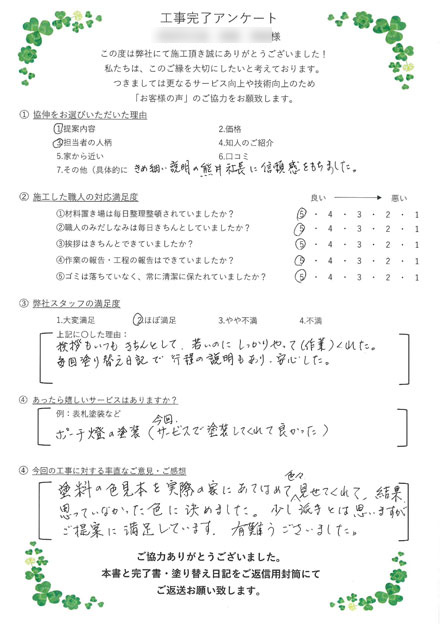 工事完了アンケート
様
この度は弊社にて施工頂き誠にありがとうございました！
私たちは、このご縁を大切にしたいと考えております。
つきましては更なるサービス向上や技術向上のため
「お客様の声」のご協力をお願致します。
① 協伸をお選びいただいた理由
1.提案内容 2.価格
3.担当者の人柄 4.知人のご紹介
5.家から近い 6.口コミ
7.その他（具体的に きめ細い説明の熊井社長に信頼感をもちました。
② 施工した職人の対応満足度 良い 悪い
①材料置き場は毎日整理整頓されていましたか？ 5・4・3・2・1
②職人のみだしなみは毎日きちんとしていましたか？ 5・4・3・2・1
③挨拶はきちんとできていましたか？ 5・4・3・2・1
④作業の報告・工程の報告はできていましたか？ 5・4・3・2・1
⑤ゴミは落ちていなく、常に清潔に保たれていましたか？ 5・4・3・2・1
③ 弊社スタッフの満足度
1.大変満足 2.ほぼ満足 3.やや不満 4.不満
上記に〇した理由：
挨拶もいつもきちんとして、若いのにしっかりやって（作業）くれた。
毎回塗り替え日記で行程の説明もあり、安心した。
④ あったら嬉しいサービスはありますか？
例：表札塗装など
今回、
ポーチ燈の塗装（サービスで塗装してくれて良かった）
④ 今回の工事に対する率直なご意見・ご感想
色々
塗料の色見本を実際の家にあてはめて見せてくれて、結果、
思っていなかった色に決めました。少し派手とは思いますが
ご提案に満足しています。有難うございました。
ご協力ありがとうございました。
本書と完了書・塗り替え日記をご返信用封筒にて
ご返送お願い致します。